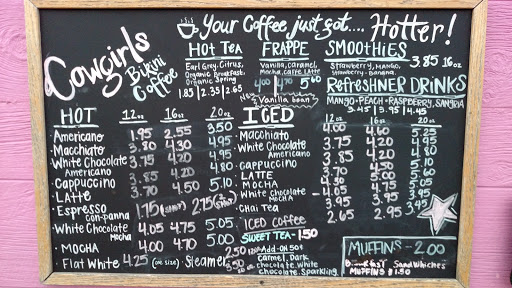 Your Coffee just got.... Hotter!
Cowgirls
Bikini
Coffee
HOT TEA
Earl Grey, Citrus,
Organic Breakfast,
Organic Spring
1.85 | 2.35 | 2.65
FRAPPE
Vanilla, Caramel,
Mocha, Caffe Latte
4.00 4.70 5.80
Vanilla bean
SMOOTHIES
Strawberry, Mango,
Strawberry-Banana
3.85 16oz
Refreshner Drinks
MANGO·PEACH·RASPBERRY, SANGRIA
3.45 | 3.95 | 4.45
HOT 12oz 16oz 20oz
· Americano 1.95 2.55 3.50
· Macchiato 3.80 4.30 4.95
· White Chocolate Americano 3.75 4.20 4.95
· Cappuccino 3.85 4.20 4.80
· Latte 3.70 4.50 5.10
· Espresso con-panna 1.75 2.75
· White Chocolate Mocha 4.05 4.75 5.05
· MOCHA 4.00 4.70 5.00
· Flat White 4.25 (one size)
· Steamer 2.50
ICED 12oz 16oz 20oz
· Americano 4.00 4.60 5.25
· Macchiato 3.75 4.20 4.95
· White Chocolate Americano 3.85 4.20 4.80
· Cappuccino 3.70 4.50 5.10
· LATTE 3.85 5.00 5.60
· MOCHA 4.30 4.75 5.05
· White Chocolate Mocha 4.05 4.75
· Chai Tea 3.95 3.95
· ICED Coffee 2.65 2.95 3.45
SWEET TEA - 1.50
Add-On 50¢
Carmel, Dark
chocolate, White
chocolate, Sparkling
MUFFINS - 2.00
Breakfast Sandwiches
MUFFINS $1.50